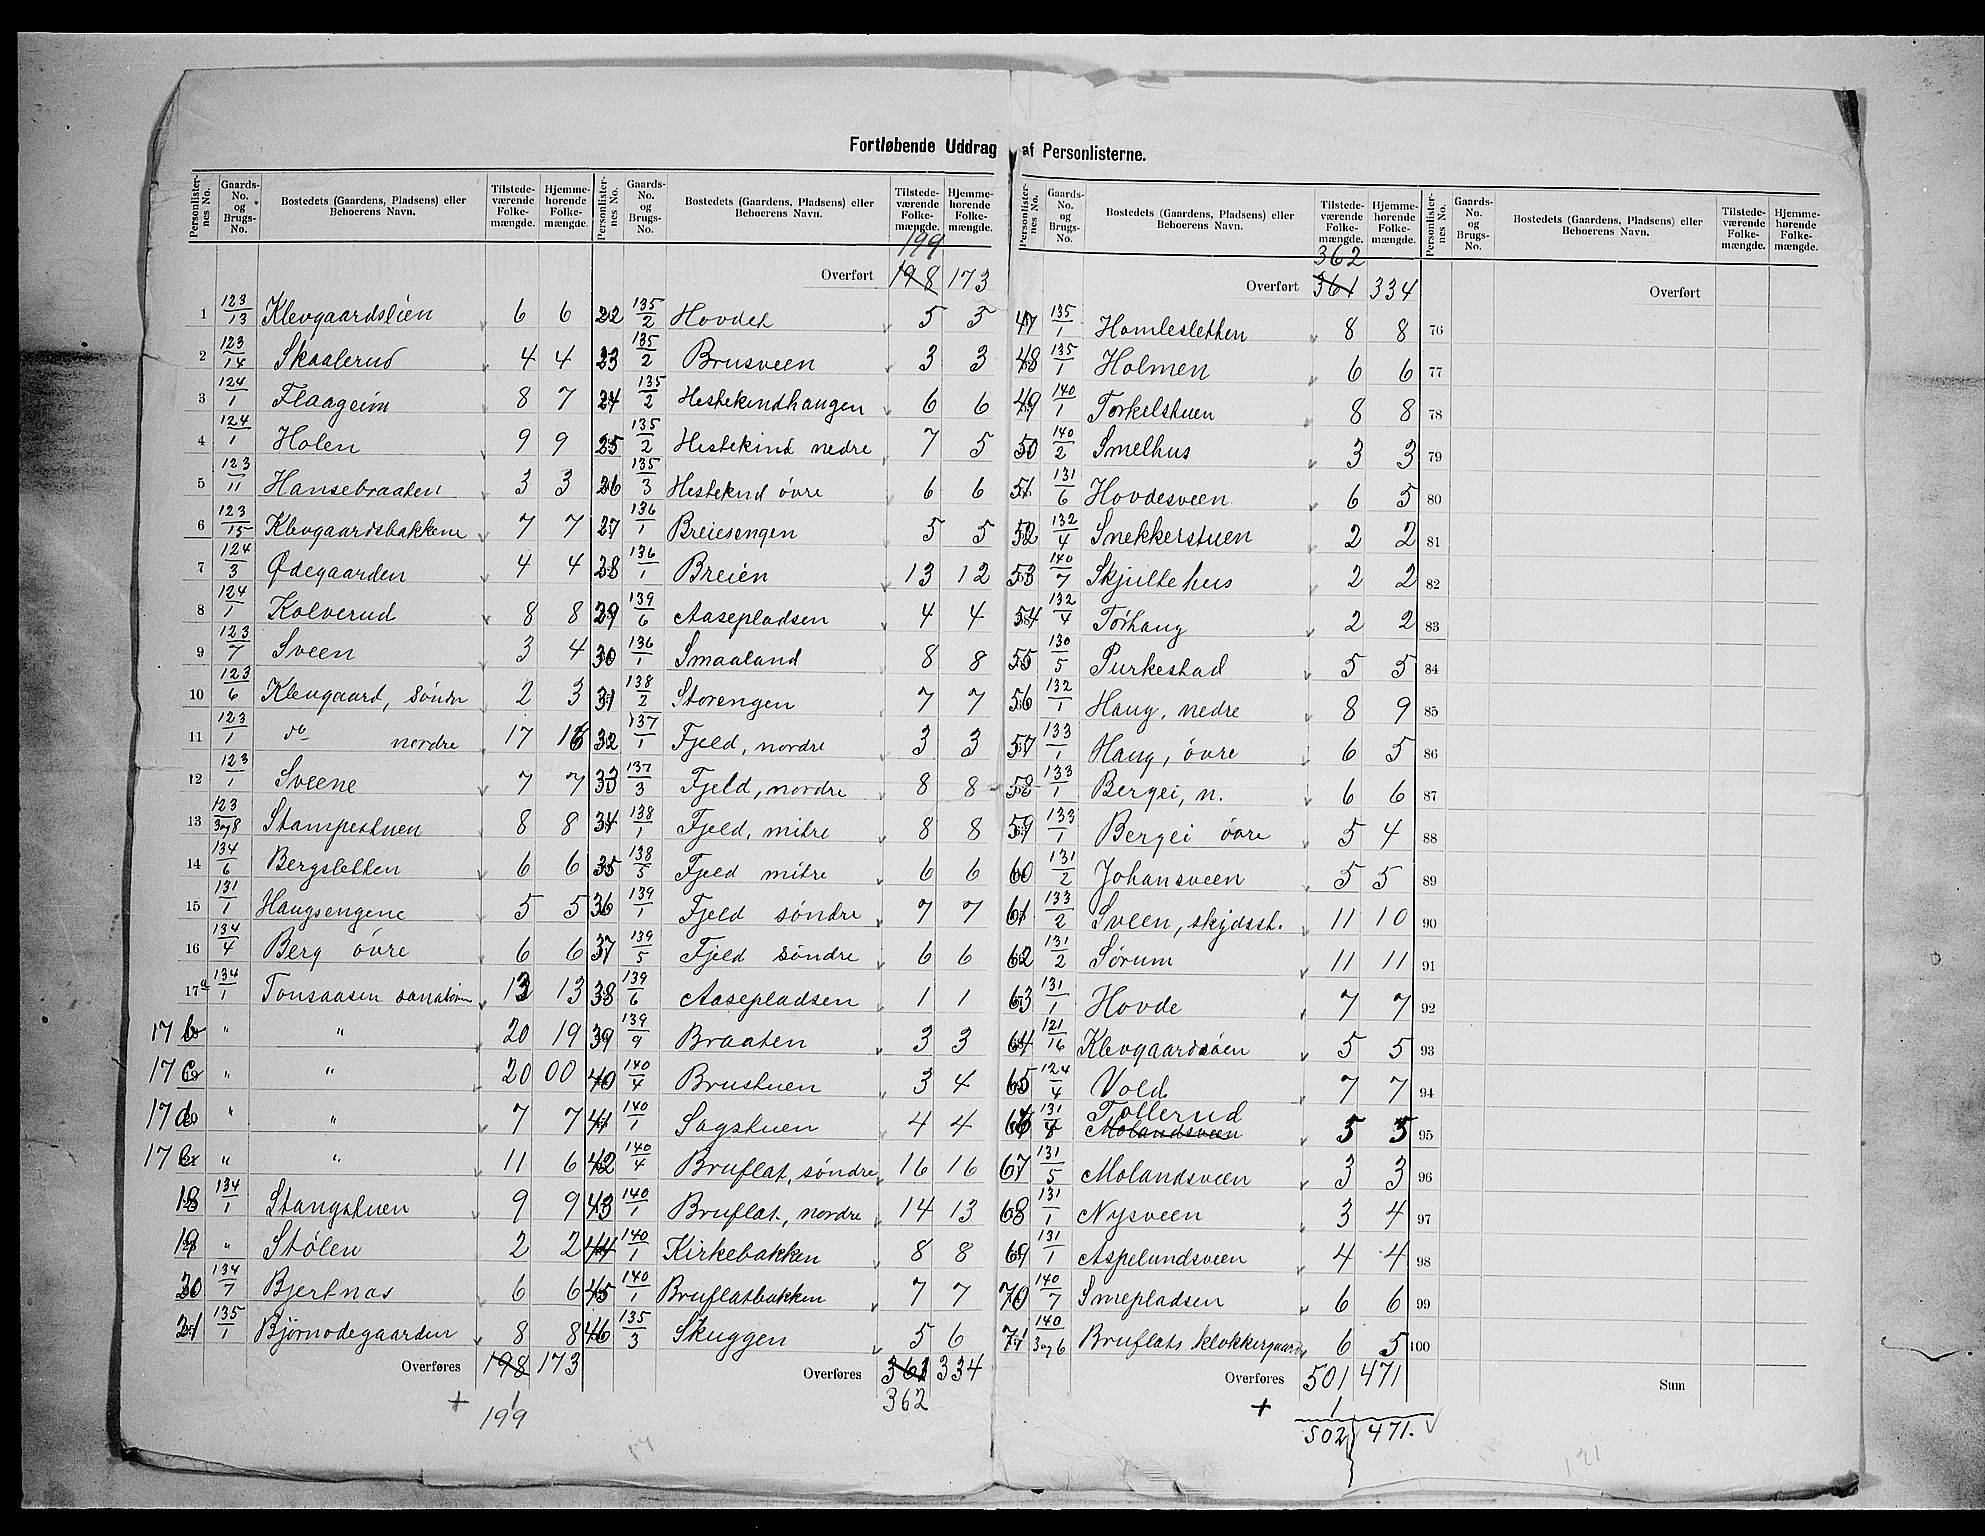 Fortløbende Uddrag af Personlisterne.
Personlister-nes No. | Gaards-No. og Brugs-No. | Bostedets (Gaardens, Pladsens) eller Beboerens Navn. | Tilstede-værende Folke-mængde. | Hjemme-hørende Folke-mængde.
1 123/13 Klevgaardslien 6 6
2 123/14 Skaalerud 4 4
3 124/1 Flaageim 8 7
4 124/1 Holen 9 9
5 123/11 Hansebraaten 3 3
6 123/15 Klevgaardsbakkene 7 7
7 124/3 Ødegaarden 4 4
8 124/1 Kolverud 8 8
9 123/7 Sveen 3 4
10 123/6 Klevgaard, søndre 2 3
11 123/1 do nordre 17 16
12 123/1 Sveene 7 7
13 123/3og8 Stampestuen 8 8
14 134/6 Bergsletten 6 6
15 131/1 Haugsengene 5 5
16 134/4 Berg øvre 6 6
17a 134/1 Tonsaasen sanatorium 13 13
17 b " " 20 19
17 c " " 20 00
17 d " " 7 7
17 e " " 11 6
18 134/1 Stangstuen 9 9
19 " Stølen 2 2
20 134/7 Bjertnæs 6 6
21 135/1 Bjørnødegaarden 8 8
Overføres 198 173
+ 1
199
Personlister-nes No. | Gaards-No. og Brugs-No. | Bostedets (Gaardens, Pladsens) eller Beboerens Navn. | Tilstede-værende Folke-mængde. | Hjemme-hørende Folke-mængde.
199
Overført 198 173
22 135/2 Hovdet 5 5
23 135/2 Brusveen 3 3
24 135/2 Hestekindhaugen 6 6
25 135/2 Hestekind nedre 7 5
26 135/3 Hesteknd øvre 6 6
27 136/1 Breiesengen 5 5
28 136/1 Breien 13 12
29 139/6 Aasepladsen 4 4
30 136/1 Smaaland 8 8
31 138/2 Storengen 7 7
32 137/1 Fjeld, nordre 3 3
33 137/3 Fjeld, nordre 8 8
34 138/1 Fjeld, mitre 8 8
35 138/5 Fjeld mitre 6 6
36 139/1 Fjeld søndre 7 7
37 139/5 Fjeld søndre 6 6
38 139/6 Aasepladsen 1 1
39 139/9 Braaten 3 3
40 140/4 Brustuen 3 4
41 140/1 Sagstuen 4 4
42 140/4 Bruflat, søndre 16 16
43 140/1 Bruflat, nordre 14 13
44 140/1 Kirkebakken 8 8
45 140/1 Bruflatbakken 7 7
46 135/3 Skuggen 5 6
Overføres 361 334
362
Personlister-nes No. | Gaards-No. og Brugs-No. | Bostedets (Gaardens, Pladsens) eller Beboerens Navn. | Tilstede-værende Folke-mængde. | Hjemme-hørende Folke-mængde.
362
Overført 361 334
47 135/1 Homlesletten 8 8
48 135/1 Holmen 6 6
49 140/1 Torkelstuen 8 8
50 140/2 Smelhus 3 3
51 131/6 Hovdesveen 6 5
52 132/4 Snekkerstuen 2 2
53 140/7 Skjultehus 2 2
54 132/4 Torhaug 2 2
55 130/5 Purkestad 5 5
56 132/1 Haug, nedre 8 9
57 133/1 Haug, øvre 6 5
58 133/1 Bergei, n. 6 6
59 133/1 Bergei øvre 5 4
60 131/2 Johansveen 5 5
61 133/2 Sveen, skydsst. 11 10
62 131/2 Sørum 11 11
63 131/1 Hovde 7 7
64 121/16 Klevgaardsøen 5 5
65 124/4 Vold 7 7
66 131/4 Tollerud Molandsveen 5 5
67 131/5 Molandsveen 3 3
68 131/1 Nysveen 3 4
69 131/1 Aspelundsveen 4 4
70 140/7 Smepladsen 6 6
71 140/3og6 Bruflats klokkergaard 6 5
Overføres 501 471
+ 1
502 471.
Personlister-nes No. | Gaards-No. og Brugs-No. | Bostedets (Gaardens, Pladsens) eller Beboerens Navn. | Tilstede-værende Folke-mængde. | Hjemme-hørende Folke-mængde.
Overført
76
77
78
79
80
81
82
83
84
85
86
87
88
89
90
91
92
93
94
95
96
97
98
99
100
Sum
121